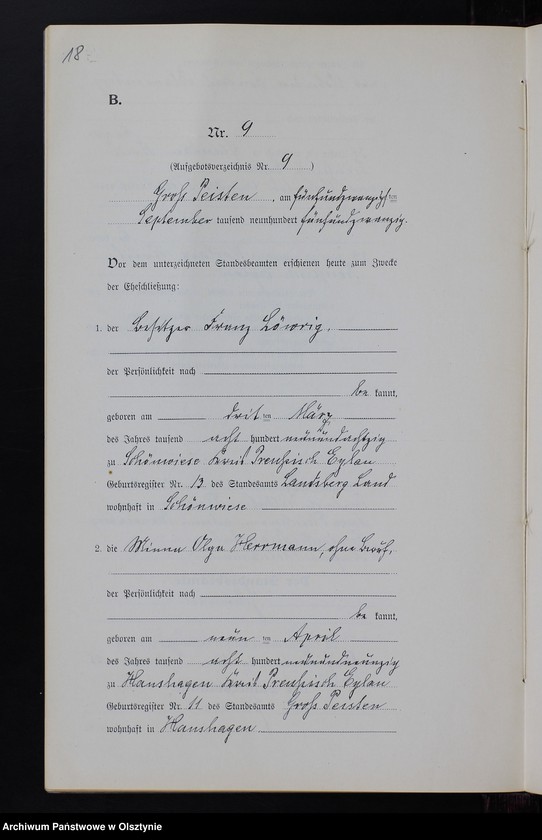 18
B.
Nr. 9
(Aufgebotsverzeichnis Nr. 9)
Groß Peisten, am fünfundzwanzigsten
September tausend neunhundert fünfundzwanzig.
Vor dem unterzeichneten Standesbeamten erschienen heute zum Zwecke
der Eheschließung:
1. der Besitzer Franz Löwrig,
der Persönlichkeit nach
be kannt,
geboren am dritten März
des Jahres tausend acht hundert neunundachtzig
zu Schönwiese Kreis Preußisch Eylau
Geburtsregister Nr. 13 des Standesamts Landsberg Land
wohnhaft in Schönwiese
2. die Minna Olga Herrmann, ohne Beruf,
der Persönlichkeit nach
be kannt,
geboren am neunten April
des Jahres tausend acht hundert neunundneunzig
zu Hanshagen Kreis Preußisch Eylau
Geburtsregister Nr. 11 des Standesamts Groß Peisten
wohnhaft in Hanshagen
Archiwum Państwowe w Olsztynie